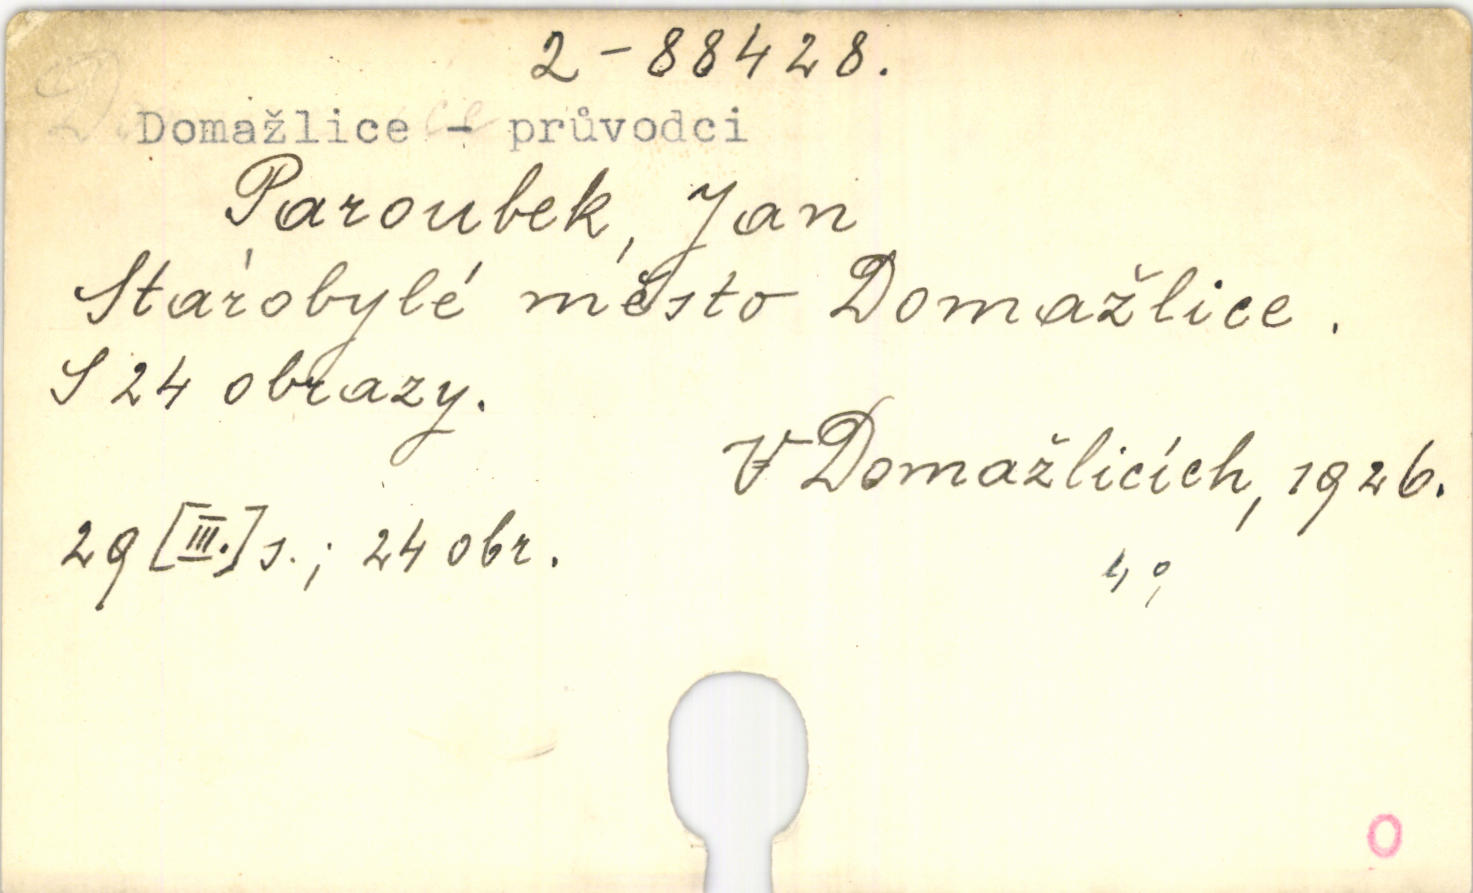 2-88428.
Domažlice - průvodci
Paroubek, Jan
Starobylé město Domažlice.
S 24 obrazy.
V Domažlicích, 1926.
29 [III.] s.; 24 obr.
4°,
0